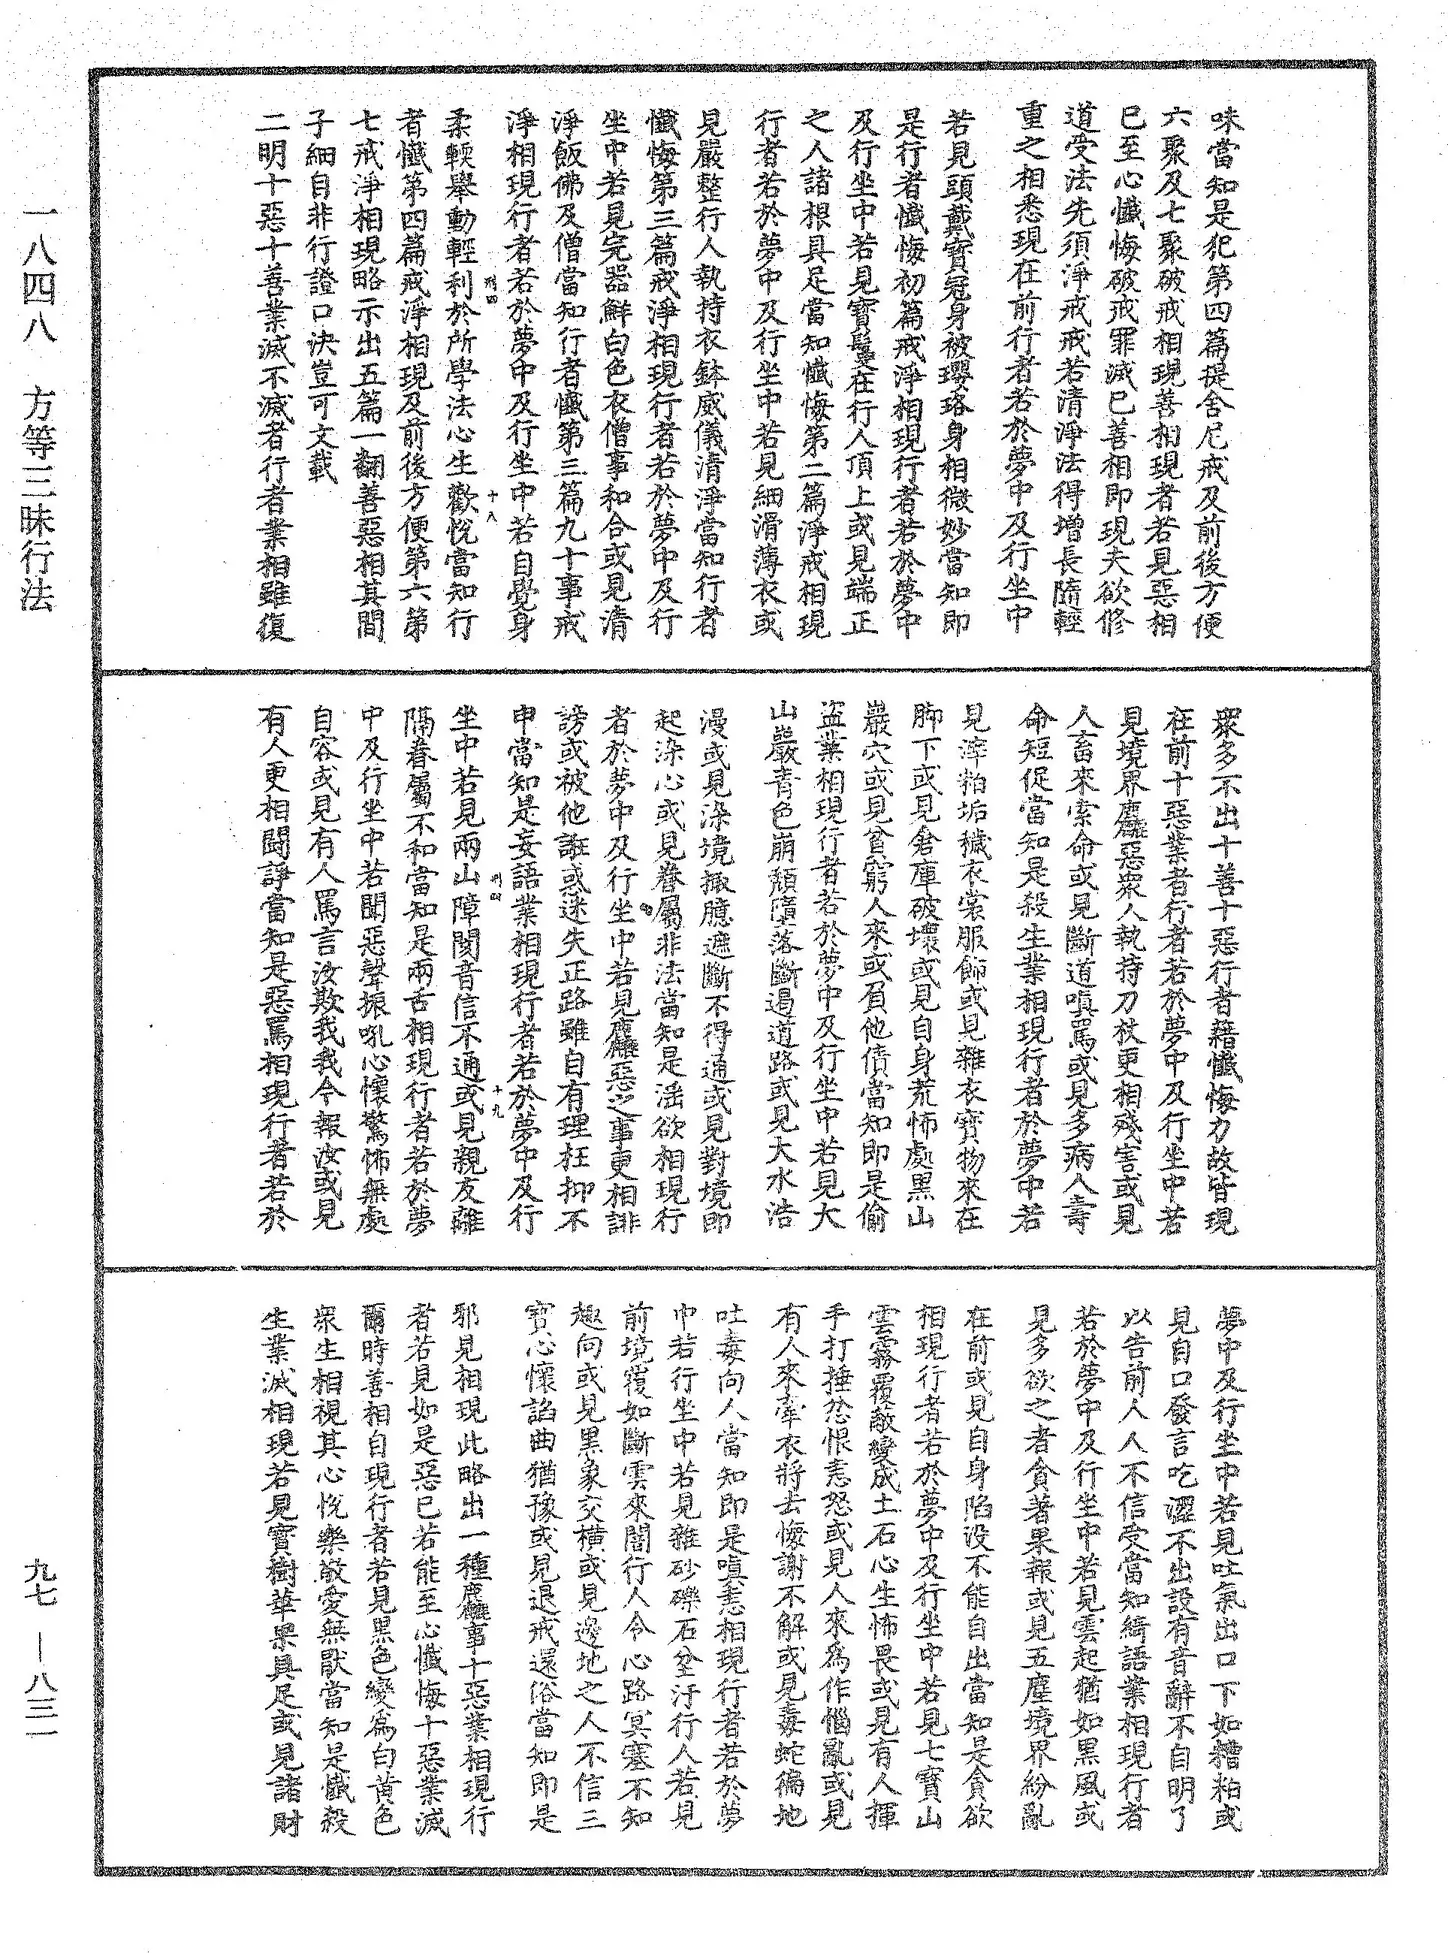 味當知是犯第四篇提舍尼戒及前後方便
六聚及七聚破戒相現善相現者若見惡相
已至心懺悔破戒罪滅已善相即現夫欲修
道受法先須淨戒戒若清淨法得增長隨輕
重之相悉現在前行者若於夢中及行坐中
若見頭戴寶冠身被瓔珞身相微妙當知即
是行者懺悔初篇戒淨相現行者若於夢中
及行坐中若見寶鬘在行人頂上或見端正
之人諸根具足當知懺悔第二篇淨戒相現
行者若於夢中及行坐中若見細滑薄衣或
見嚴整行人執持衣鉢威儀清淨當知行者
懺悔第三篇戒淨相現行者若於夢中及行
坐中若見完器鮮白色衣僧事和合或見清
淨飯佛及僧當知行者懺第三篇九十事戒
淨相現行者若於夢中及行坐中若自覺身
刑四 十八
柔輭舉動輕利於所學法心生歡悅當知行
者懺第四篇戒淨相現及前後方便第六第
七戒淨相現略示出五篇一翻善惡相其間
子細自非行證口決豈可文載
二明十惡十善業滅不滅者行者業相雖復
眾多不出十善十惡行者藉懺悔力故皆現
在前十惡業者行者若於夢中及行坐中若
見境界麤惡眾人執持刀杖更相殘害或見
人畜來索命或見斷道嗔罵或見多病人壽
命短促當知是殺生業相現行者於夢中若
見滓粕垢穢衣裳服飾或見雜衣寶物來在
脚下或見倉庫破壞或見自身荒怖處黑山
巖穴或見貧窮人來或負他債當知即是偷
盜業相現行者若於夢中及行坐中若見大
山巖青色崩頹墮落斷遏道路或見大水浩
漫或見染境擻臆遮斷不得通或見對境即
起染心或見眷屬非法當知是淫欲相現行
者於夢中及行坐中若見麤惡之事更相誹
謗或被他誑惑迷失正路雖自有理枉抑不
申當知是妄語業相現行者若於夢中及行
刑四 十九
坐中若見兩山障閡音信不通或見親友離
隔眷屬不和當知是兩舌相現行者若於夢
中及行坐中若聞惡聲振吼心懷驚怖無處
自容或見有人罵言汝欺我我今報汝或見
有人更相鬪諍當知是惡罵相現行者若於
夢中及行坐中若見吐氣出口下如糟粕或
見自口發言吃澀不出設有音辭不自明了
以告前人人不信受當知綺語業相現行者
若於夢中及行坐中若見雲起猶如黑風或
見多欲之者貪著果報或見五塵境界紛亂
在前或見自身陷没不能自出當知是貪欲
相現行者若於夢中及行坐中若見七寶山
雲霧覆蔽變成土石心生怖畏或見有人揮
手打捶忿恨恚怒或見人來為作惱亂或見
有人來牽衣將去悔謝不解或見毒蛇徧地
吐毒向人當知即是嗔恚相現行者若於夢
中若行坐中若見雜砂礫石坌汙行人若見
前境覆如斷雲來闇行人令心路冥塞不知
趣向或見黑象交橫或見邊地之人不信三
寶心懷諂曲猶豫或見退戒還俗當知即是
邪見相現此略出一種麤事十惡業相現行
者若見如是惡已若能至心懺悔十惡業滅
爾時善相自現行者若見黑色變為白黃色
眾生相視其心悅樂敬愛無厭當知是懺殺
生業滅相現若見寶樹華果具足或見諸財
一八四八 方等三昧行法
九七 — 八三一